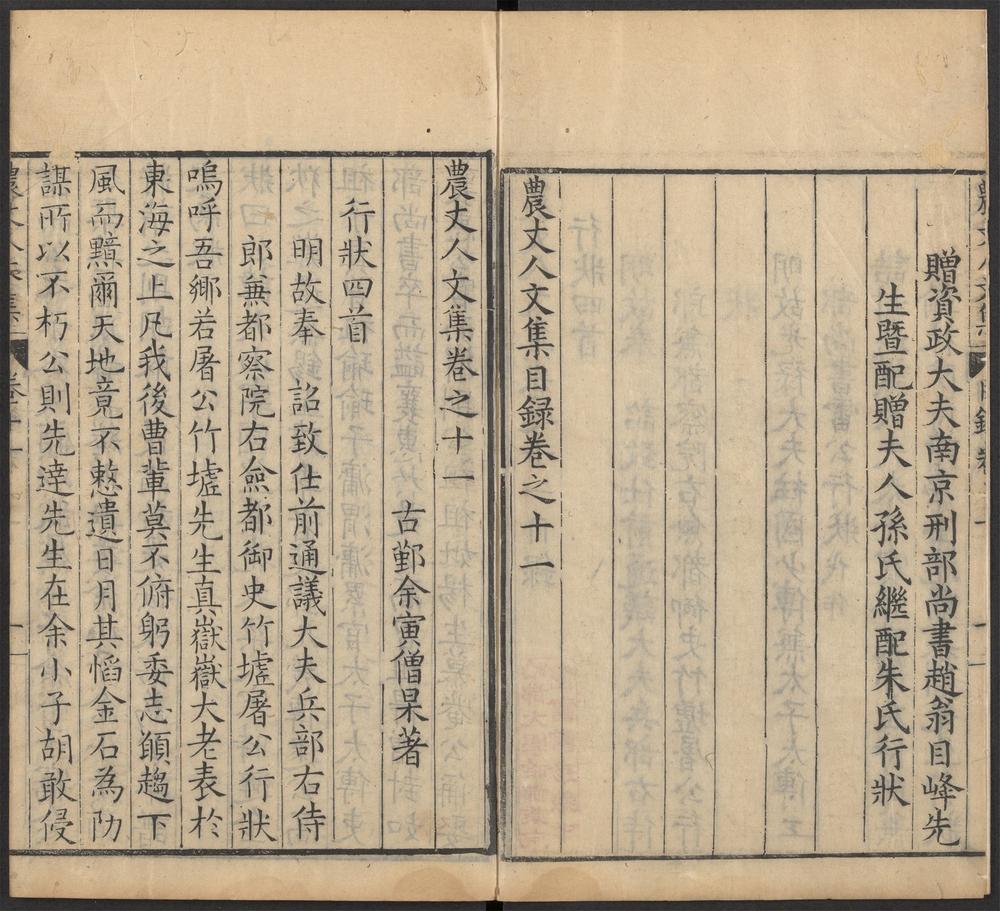 贈資政大夫南京刑部尚書趙翁目峰先
生暨配贈夫人孫氏繼配朱氏行狀
農丈人文集目録卷之十一
農丈人文集卷之十一
古鄞余寅僧杲著
行狀四首
明故奉 詔致仕前通議大夫兵部右侍
郎兼都察院右僉都御史竹墟屠公行狀
嗚呼吾鄉若屠公竹墟先生真嶽嶽大老表於
東海之上凡我後曹輩莫不俯躬委志頠趨下
風而黷爾天地竟不憖遺日月其慆金石為阞
諆所以不朽公則先達先生在余小子胡敢侵